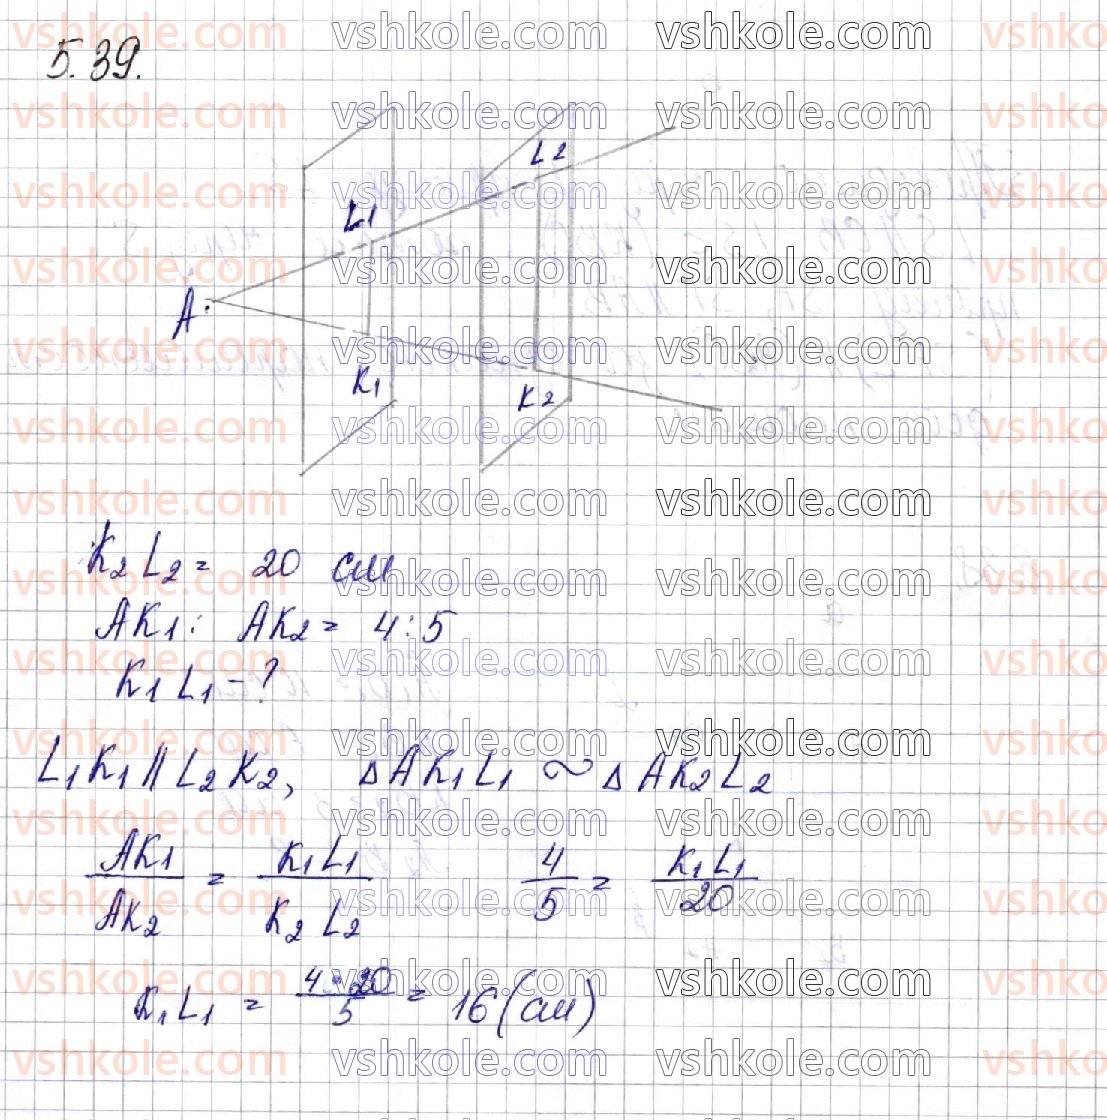 5.39.
L2
L1
A
K1
K2
K2 L2 = 20 см
AK1 : AK2 = 4 : 5
K1 L1 - ?
L1K1 || L2K2, △AK1L1 ~ △AK2L2
AK1/AK2 = K1L1/K2L2   4/5 = K1L1/20
K1L1 = 4·20/5 = 16 (см)
vshkole.com